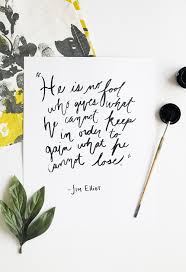 "He is no fool
who gives what
he cannot keep
in order to
gain what he
cannot lose."
-Jim Elliot